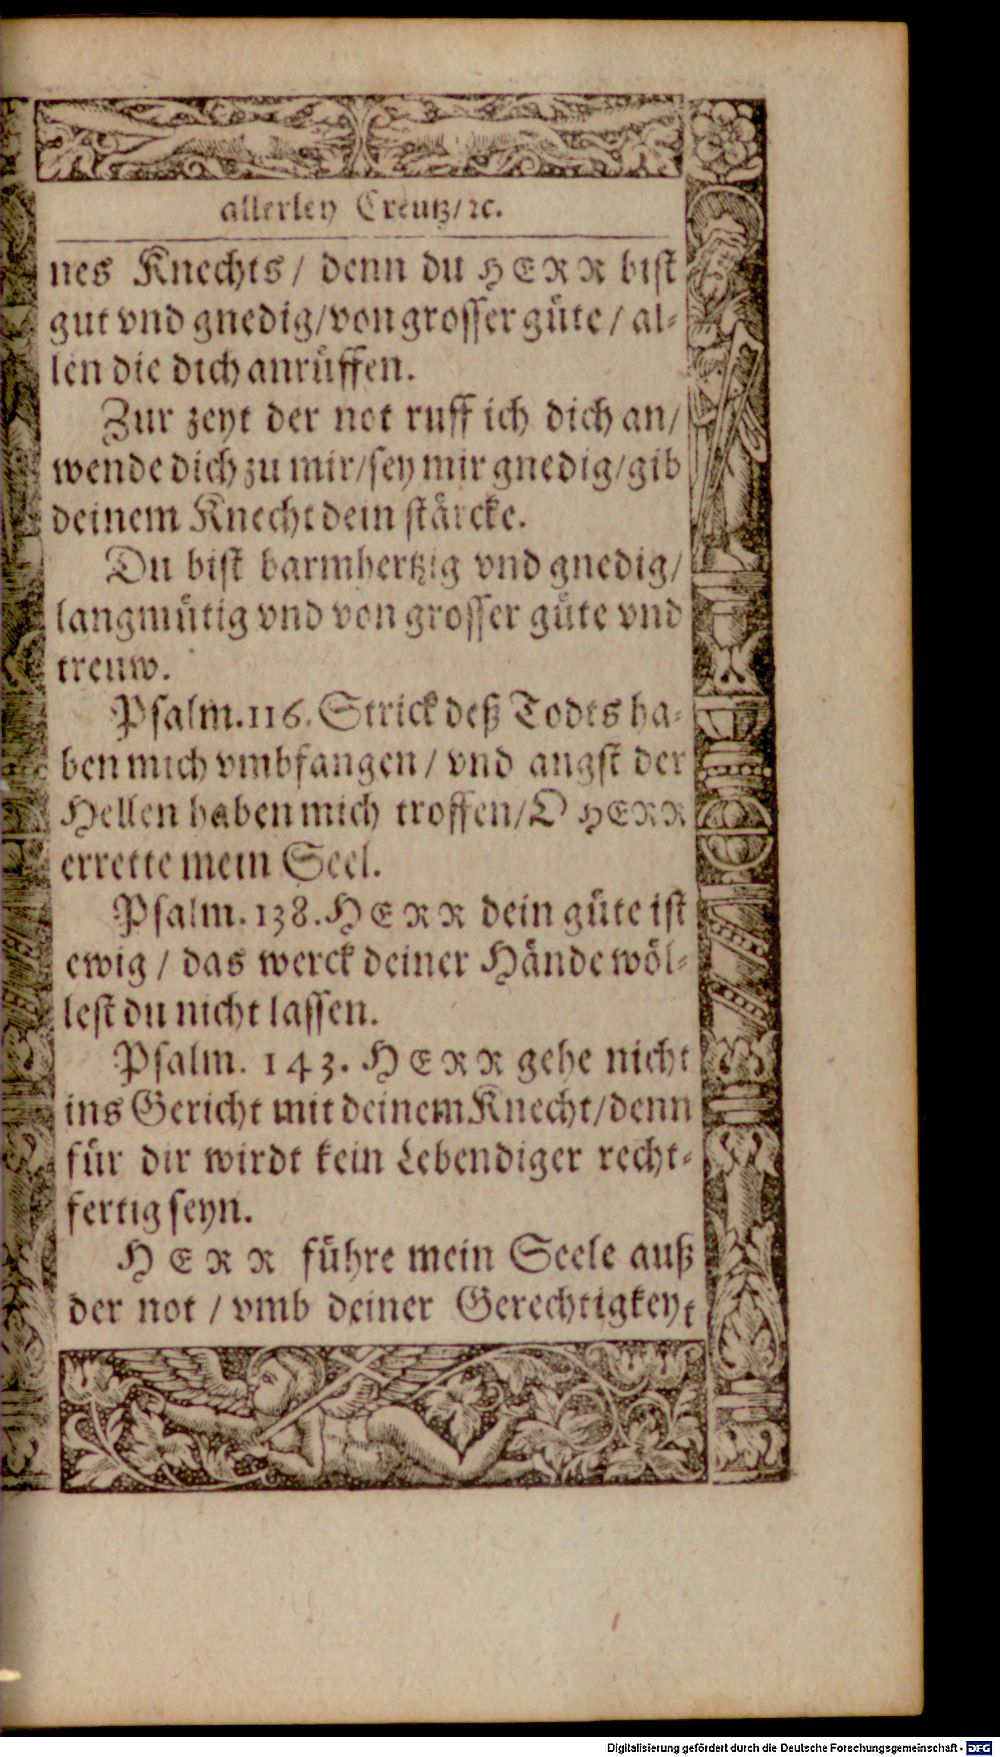 allerley Creutz/ꝛc.
nes Knechts/ denn du HERR bist
gut vnd gnedig/von grosser güte/ al-
len die dich anrüffen.
Zur zeyt der not ruff ich dich an/
wende dich zu mir/sey mir gnedig/gib
deinem Knecht dein stärcke.
Du bist barmhertzig vnd gnedig/
langmütig vnd von grosser güte vnd
treuw.
Psalm.116. Strick deß Todts ha-
ben mich vmbfangen/ vnd angst der
Hellen haben mich troffen/O HERR
errette mein Seel.
Psalm.138. HERR dein güte ist
ewig/ das werck deiner Hände wöl-
lest du nicht lassen.
Psalm. 143. HERR gehe nicht
ins Gericht mit deinem Knecht/denn
für dir wirdt kein Lebendiger recht-
fertig seyn.
HERR führe mein Seele auß
der not/ vmb deiner Gerechtigkeyt
Digitalisierung gefördert durch die Deutsche Forschungsgemeinschaft - DFG